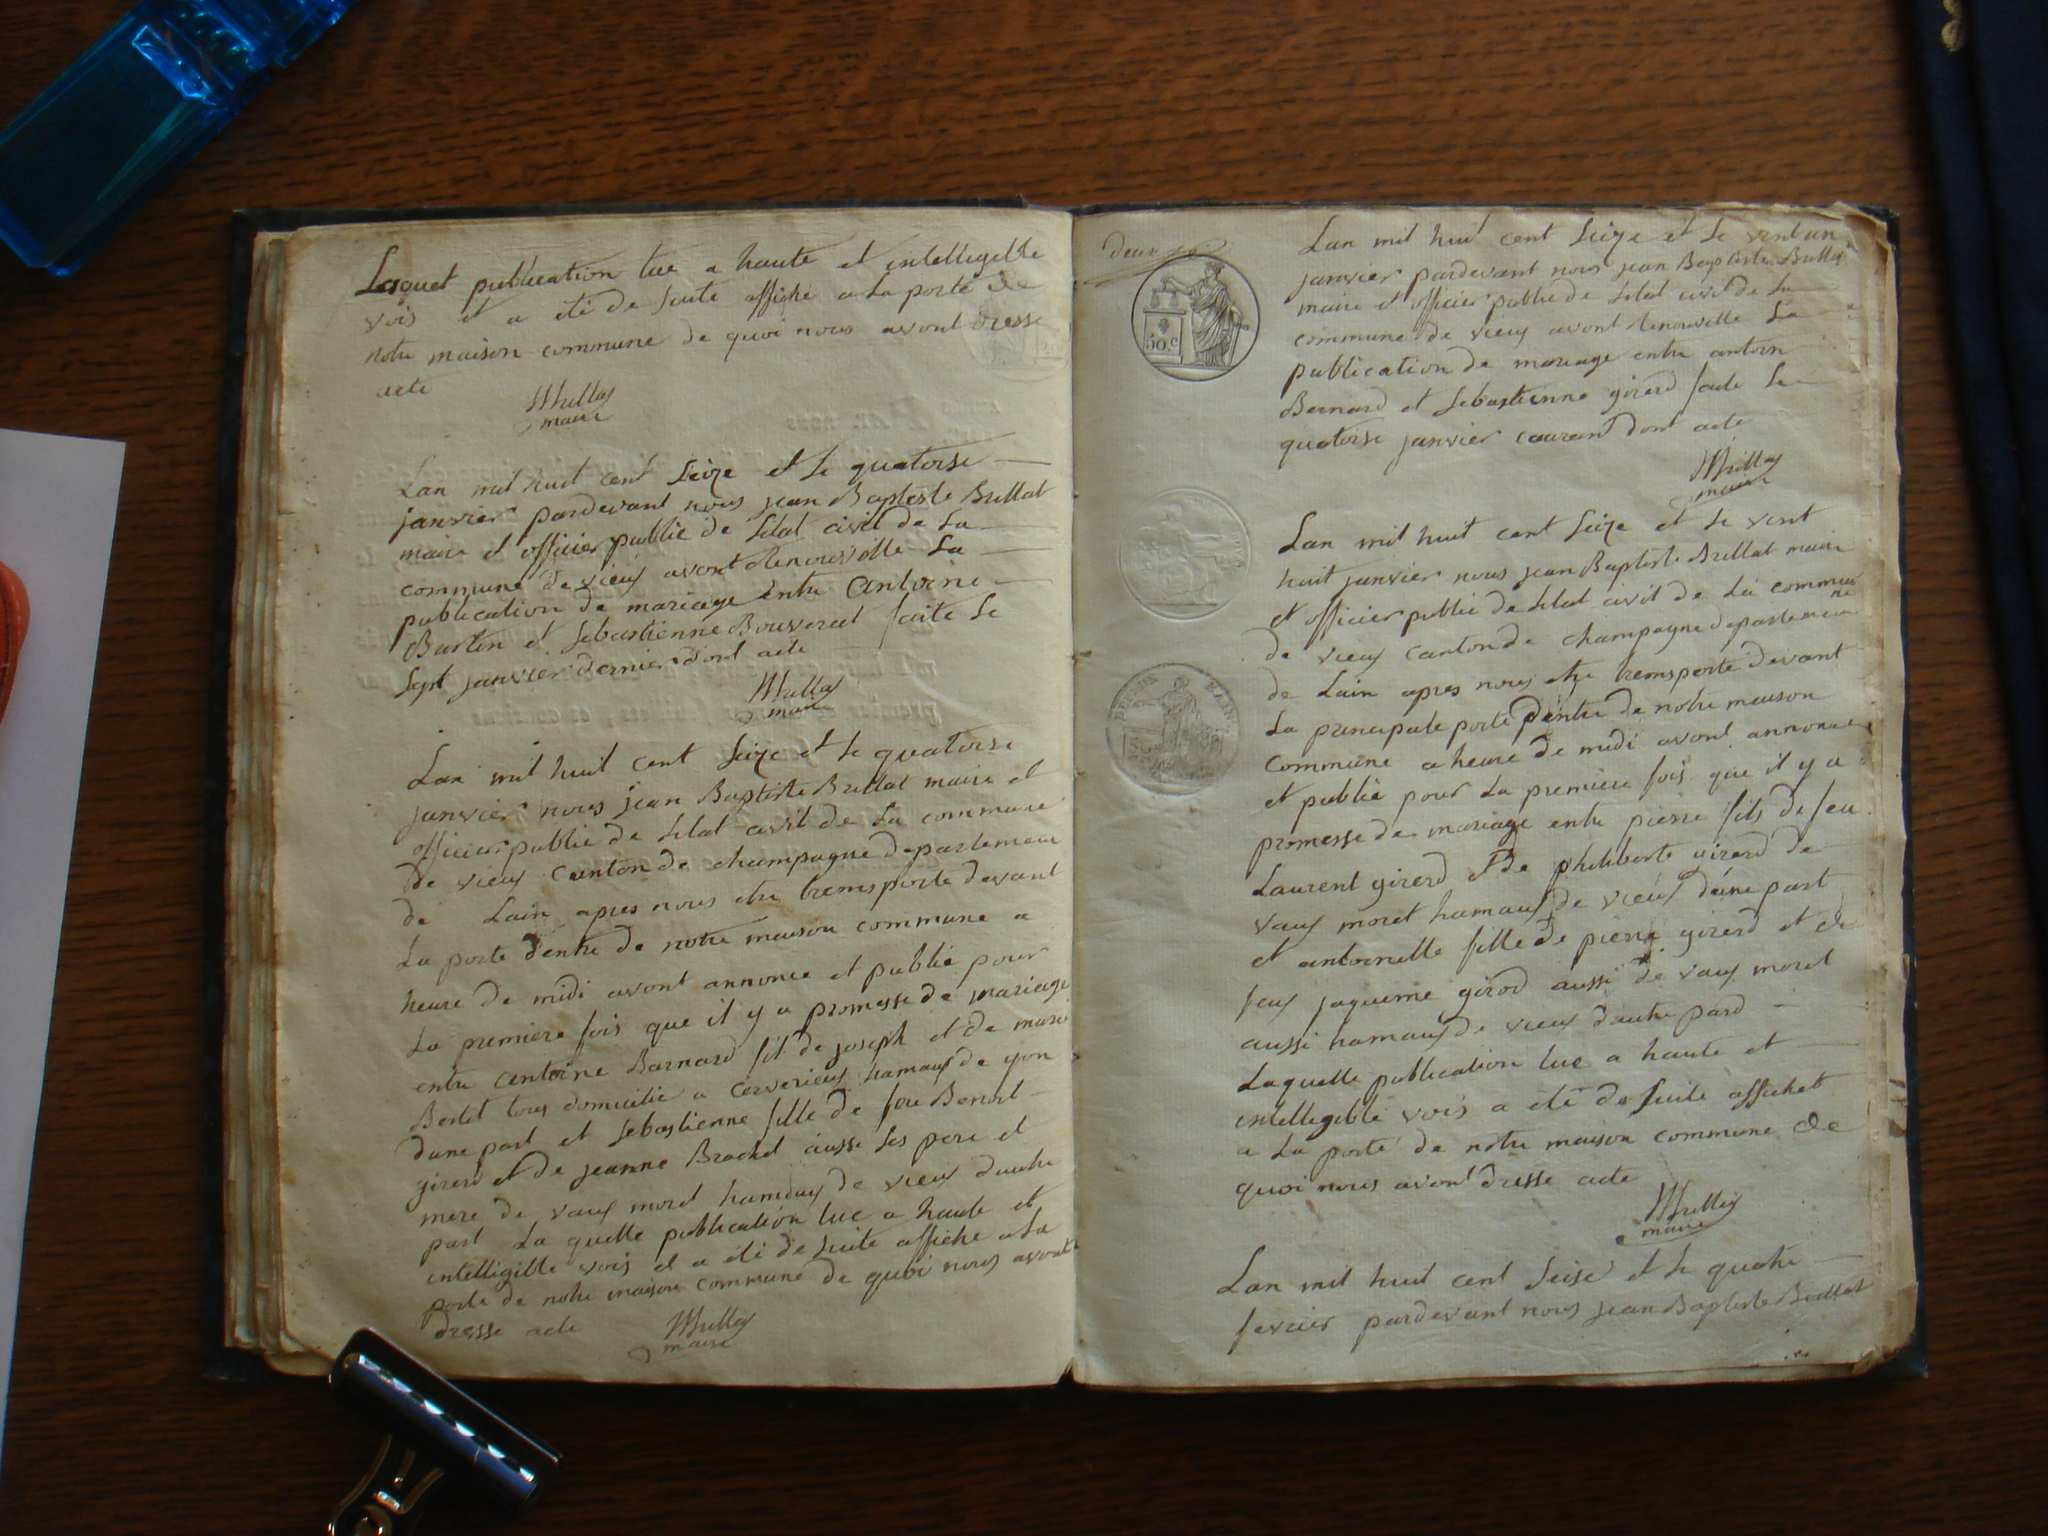 Laquel publication lue a haute et intelligible
vois et a été de suite affiché a la porte de
notre maison commune de quoi nous avont dressé
acte
Brillat
maire
Lan mil huit cent seize et le quatorse
janvier pardevant nous jean Baptiste Brillat
maire et officier public de letat civil de la
commune de vieux avont Renouvellé la
publication de mariage entre antoine
Burtin et sebastienne Bouverat faite le
sept janvier dernier dont acte
Brillat
maire
Lan mil huit cent seize et le quatorse
janvier nous jean Baptiste Brillat maire et
officier public de letat civil de la commune
de vieux canton de champagne departement
de Lain apres nous etre tremsporté devant
La porte dentré de notre maison commune a
heure de midi avont annoncé et publié pour
La premiere fois que il y a promesse de mariage
entre antoine Barnard fil de joseph et de marie
Bertet tous domicilié a cerverieux hamaux de yon
dune part et sebastienne fille de feu Benoit
girerd et de jeanne Brachet aussi les pere et
mere de vaux moret hamaux de vieux dautre
part La quelle publication lue a haute et
intelligible vois et a été de suite affiché a la
porte de notre maison commune de quoi nous avont
dressé acte
Brillat
maire
deux
50.c
Lan mil huit cent seize et le vent un
janvier pardevant nous jean Baptiste Brillat
maire et officier public de letat civil de la
commune de vieux avont Renouvellé La
publication de mariage entre antoin
Bernard et sebastienne girerd faite le
quatorse janvier courant dont acte
Brillat
maire
Lan mil huit cent seize et le vent
huit janvier nous jean Baptiste Brillat maire
et officier public de letat civil de la commu
ne
de vieux canton de champagne departement
de Lain apres nous etre tremsporté devant
La principale porte dentré de notre maison
commune a heure de midi avont annoncé
et publié pour La premiere fois que il y a
promesse de mariage entre pierre fils de feu
Laurent girerd et de philiberte girerd de
vaux moret hamaux de vieux dune part
et antoinette fille de pierre girerd et de
feux jaqueme girod aussi de vaux moret
aussi hamaux de vieux dautre pard
Laquelle publication lue a haute et
intelligible vois a été de suite affichet
a La porte de notre maison commune de
quoi nous avont dressé acte
Brillat
maire
Lan mil huit cent seise et le quatre
fevrier pardevant nous jean Baptiste Brillat